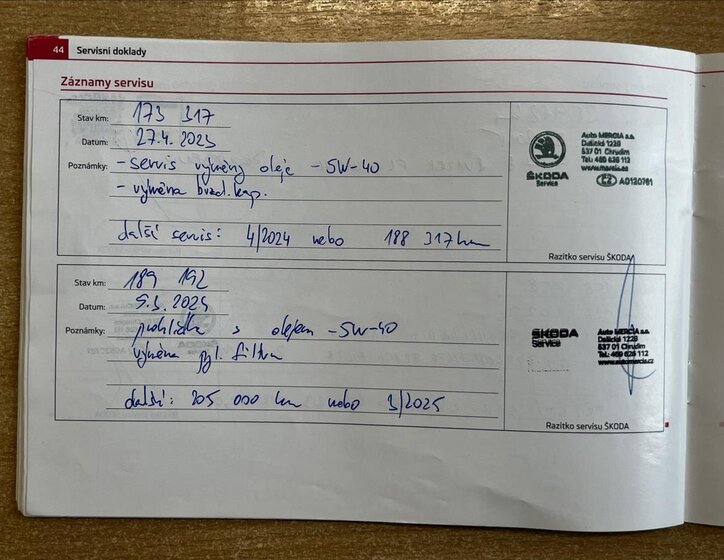 44 Servisní doklady
Záznamy servisu
Stav km: 173 317
Datum: 27.4. 2023
Poznámky: - servis výměny oleje - 5W-40
- výměna brzd. kap.
další servis: 4/2024 nebo 188 317 km
ŠKODA
Service
Auto MERCIA a.s.
Dašická 1228
537 01 Chrudim
Tel.: 469 626 112
A0120761
Razítko servisu ŠKODA
Stav km: 189 192
Datum: 5.3. 2024
Poznámky: prohlídka s olejem - 5W-40
výměna pyl. filtru
další: 205 000 km nebo 3/2025
ŠKODA
Service
Auto MERCIA a.s.
Dašická 1228
537 01 Chrudim
Tel.: 469 626 112
Razítko servisu ŠKODA